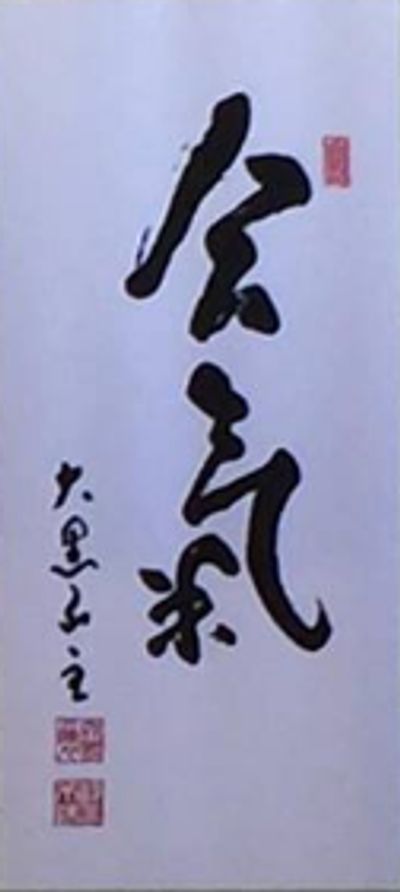 合氣
大黒山主